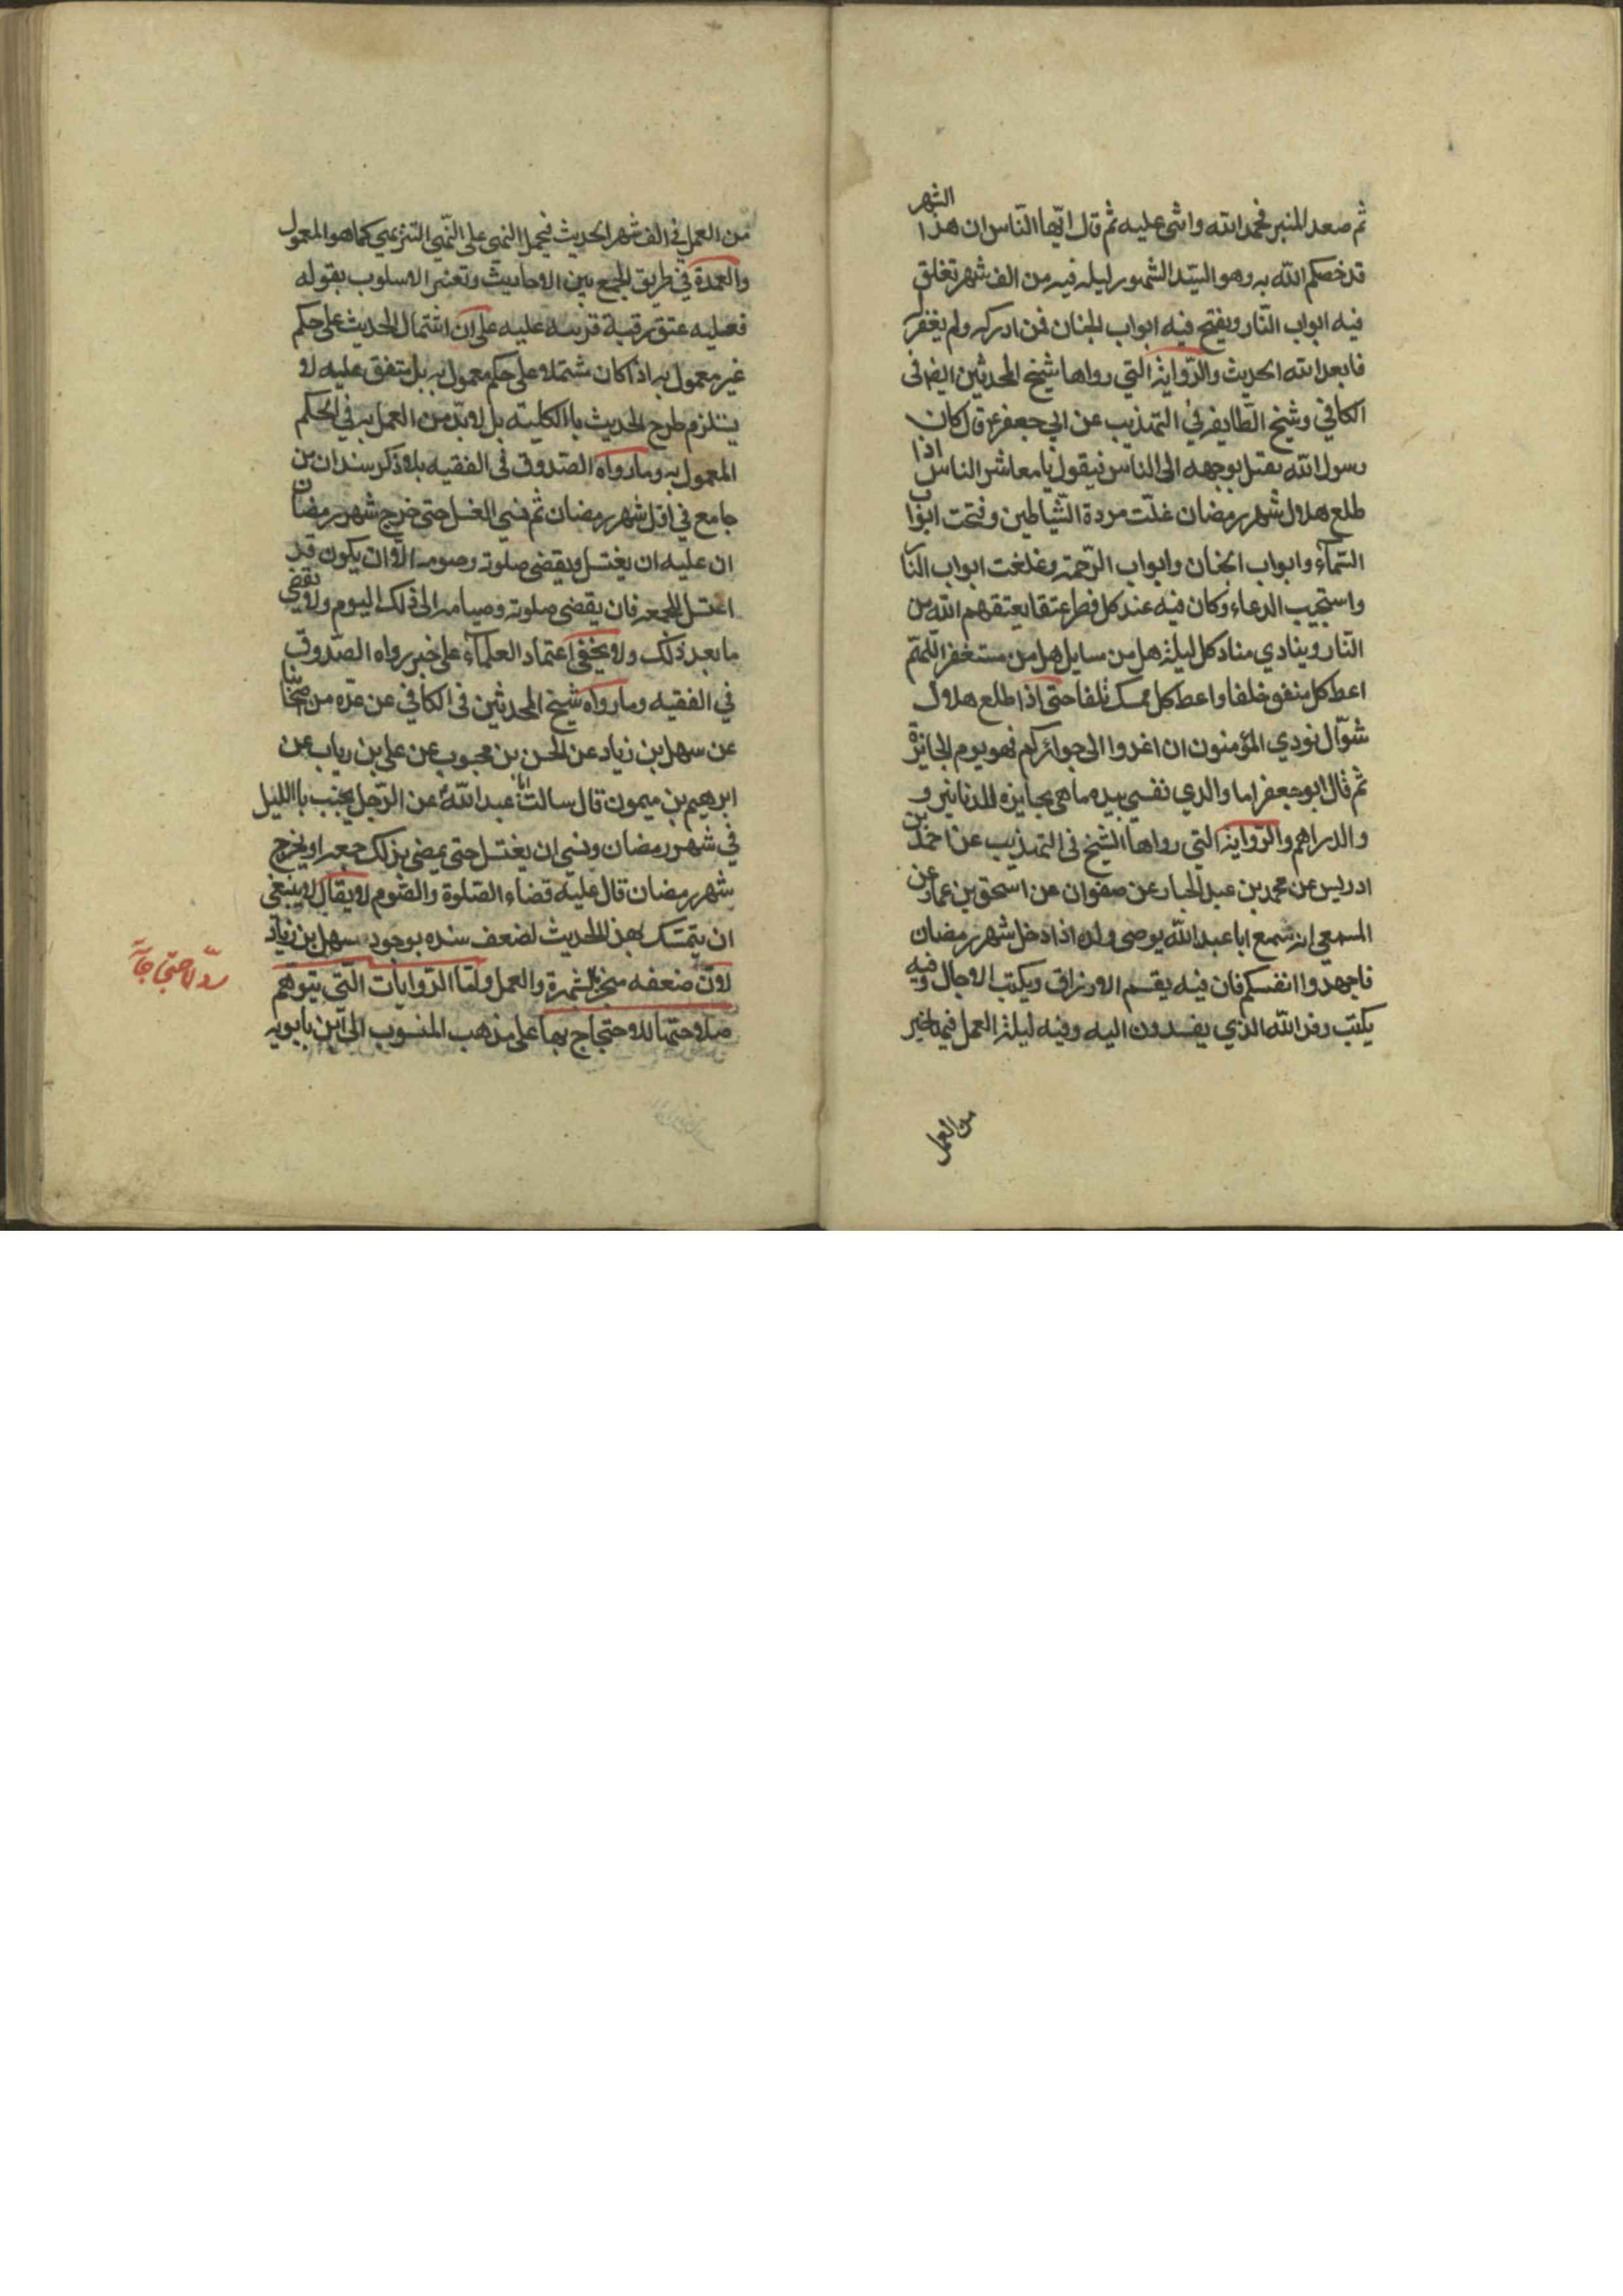 ثم صعد المنبر فحمد الله واثنى عليه ثم قال ايّها النّاس ان هذا الشهر
قد خصكم الله به وهو السيّد الشهور ليله فيه من الف شهر تغلق
فيه ابواب النّار ويفتح فيه ابواب الجنان فمن ادركه ولم يغفر له
فابعد الله الحديث والرّواية التي رواها شيخ المحدثين ايضا فى
الكافي وشيخ الطّايفه في التهذيب عن ابي جعفر ع قال كان
رسول الله يقبل بوجهه الى الناس فيقول يا معاشر الناس اذا
طلع هلال شهر رمضان غلّت مردة الشّياطين وفتحت ابواب
السّمآء وابواب الجنان وابواب الرّحمة وغلغت ابواب النار
واستجيب الدعاء وكان فيه عند كل فطر عتقا يعتقهم الله من
النّار وينادي مناد كل ليلة هل من سايل هل من مستغفر اللّهمّ
اعط كل منفق خلفا واعط كل ممسك تلفا حتى اذا طلع هلال
شوّال نودي المؤمنون ان اغدوا الى جوائزكم فهو يوم الجايزة
ثم قال ابو جعفر اما والذي نفسي بيده ما هي بجايزه الدنانير و
والدراهم والرّواية التي رواها الشيخ فى التهذيب عن احمد بن
ادريس عن محمد بن عبد الجبار عن صفوان عن اسحق بن عمار عن
المسمعي انه سمع ابا عبد الله يوصى ولده اذا دخل شهر رمضان
فاجهدوا انفسكم فان فيه يقسم الارزاق ويكتب الاجال وفيه
يكتب وفد الله الذي يفدون اليه وفيه ليلة العمل فيها خير
من العمل
من العمل في الف شهر الحديث فيحمل النهي على النّهي التنزيهي كما هو المعمول
والعمدة في طريق الجمع بين الاحاديث وتغير الاسلوب بقوله
فعليه عتق رقبة قرينه عليه على ان اشتمال الحديث على حكم
غير معمول به اذا كان مشتملا على حكم معمول به بل متفق عليه لا
يستلزم طرح الحديث باالكليّة بل لا بدّ من العمل به في الحكم
المعمول به وما رواه الصّدوق فى الفقيه بلا ذكر سند ان من
جامع في اوّل شهر رمضان ثم نسي الغسل حتى خرج شهر رمضان
ان عليه ان يغتسل ويقضى صلوته وصومه الّا ان يكون قد
اغتسل للجمعه فان يقضى صلوته وصيامه الى ذلك اليوم ولا يقضي
ما بعد ذلك ولا يخفى اعتماد العلمآء على خبر رواه الصّدوق
في الفقيه وما رواه شيخ المحدثين فى الكافي عن عدّه من اصحابنا
عن سهل بن زياد عن الحسن بن محبوب عن على بن رياب عن
ابرهيم بن ميمون قال سالت ابا عبد الله ع عن الرّجل يجنب باالليل
في شهر رمضان ونسي ان يغتسل حتى يمضى بذلك جمعه او يخرج
شهر رمضان قال عليه قضاء الصّلوة والصّوم لا يقال لا ينبغي
ان يتمسّك بهذ الحديث لضعف سنده بوجود سهل بن زياد
لانّ ضعفه منجبر بالشهرة والعمل ولمّا الرّوايات التي يتوهّم
صلاحيتها للاحتجاج بها على مذهب المنسوب الى ابن بابويه
ردّ لاحتجاجات